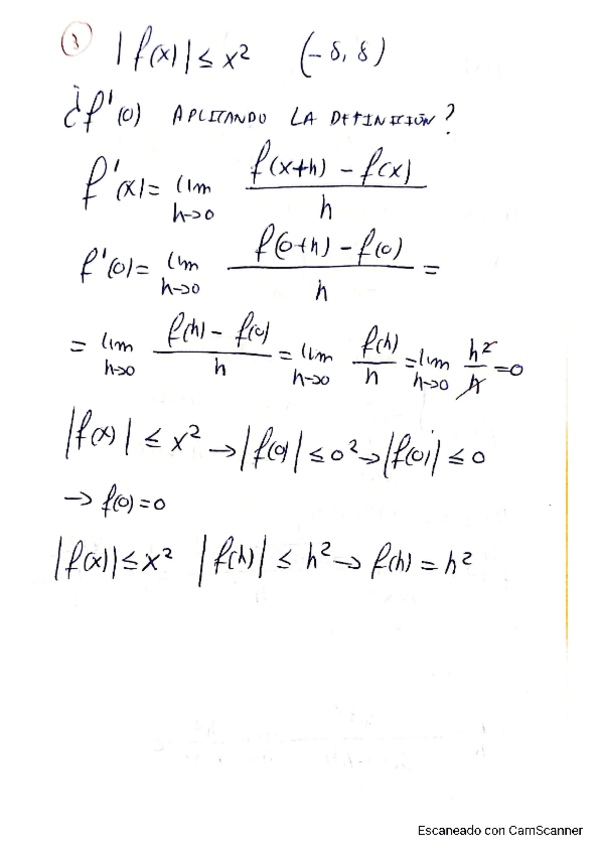 3 |f(x)| ≤ x² (-δ, δ)
¿f'(0) APLICANDO LA DEFINICIÓN?
f'(x) = lim h→0 f(x+h) - f(x) / h
f'(0) = lim h→0 f(0+h) - f(0) / h =
= lim h→0 f(h) - f(0) / h = lim h→0 f(h) / h = lim h→0 h² / h = 0
|f(x)| ≤ x² → |f(0)| ≤ 0² → |f(0)| ≤ 0
→ f(0) = 0
|f(x)| ≤ x² |f(h)| ≤ h² → f(h) = h²
Escaneado con CamScanner